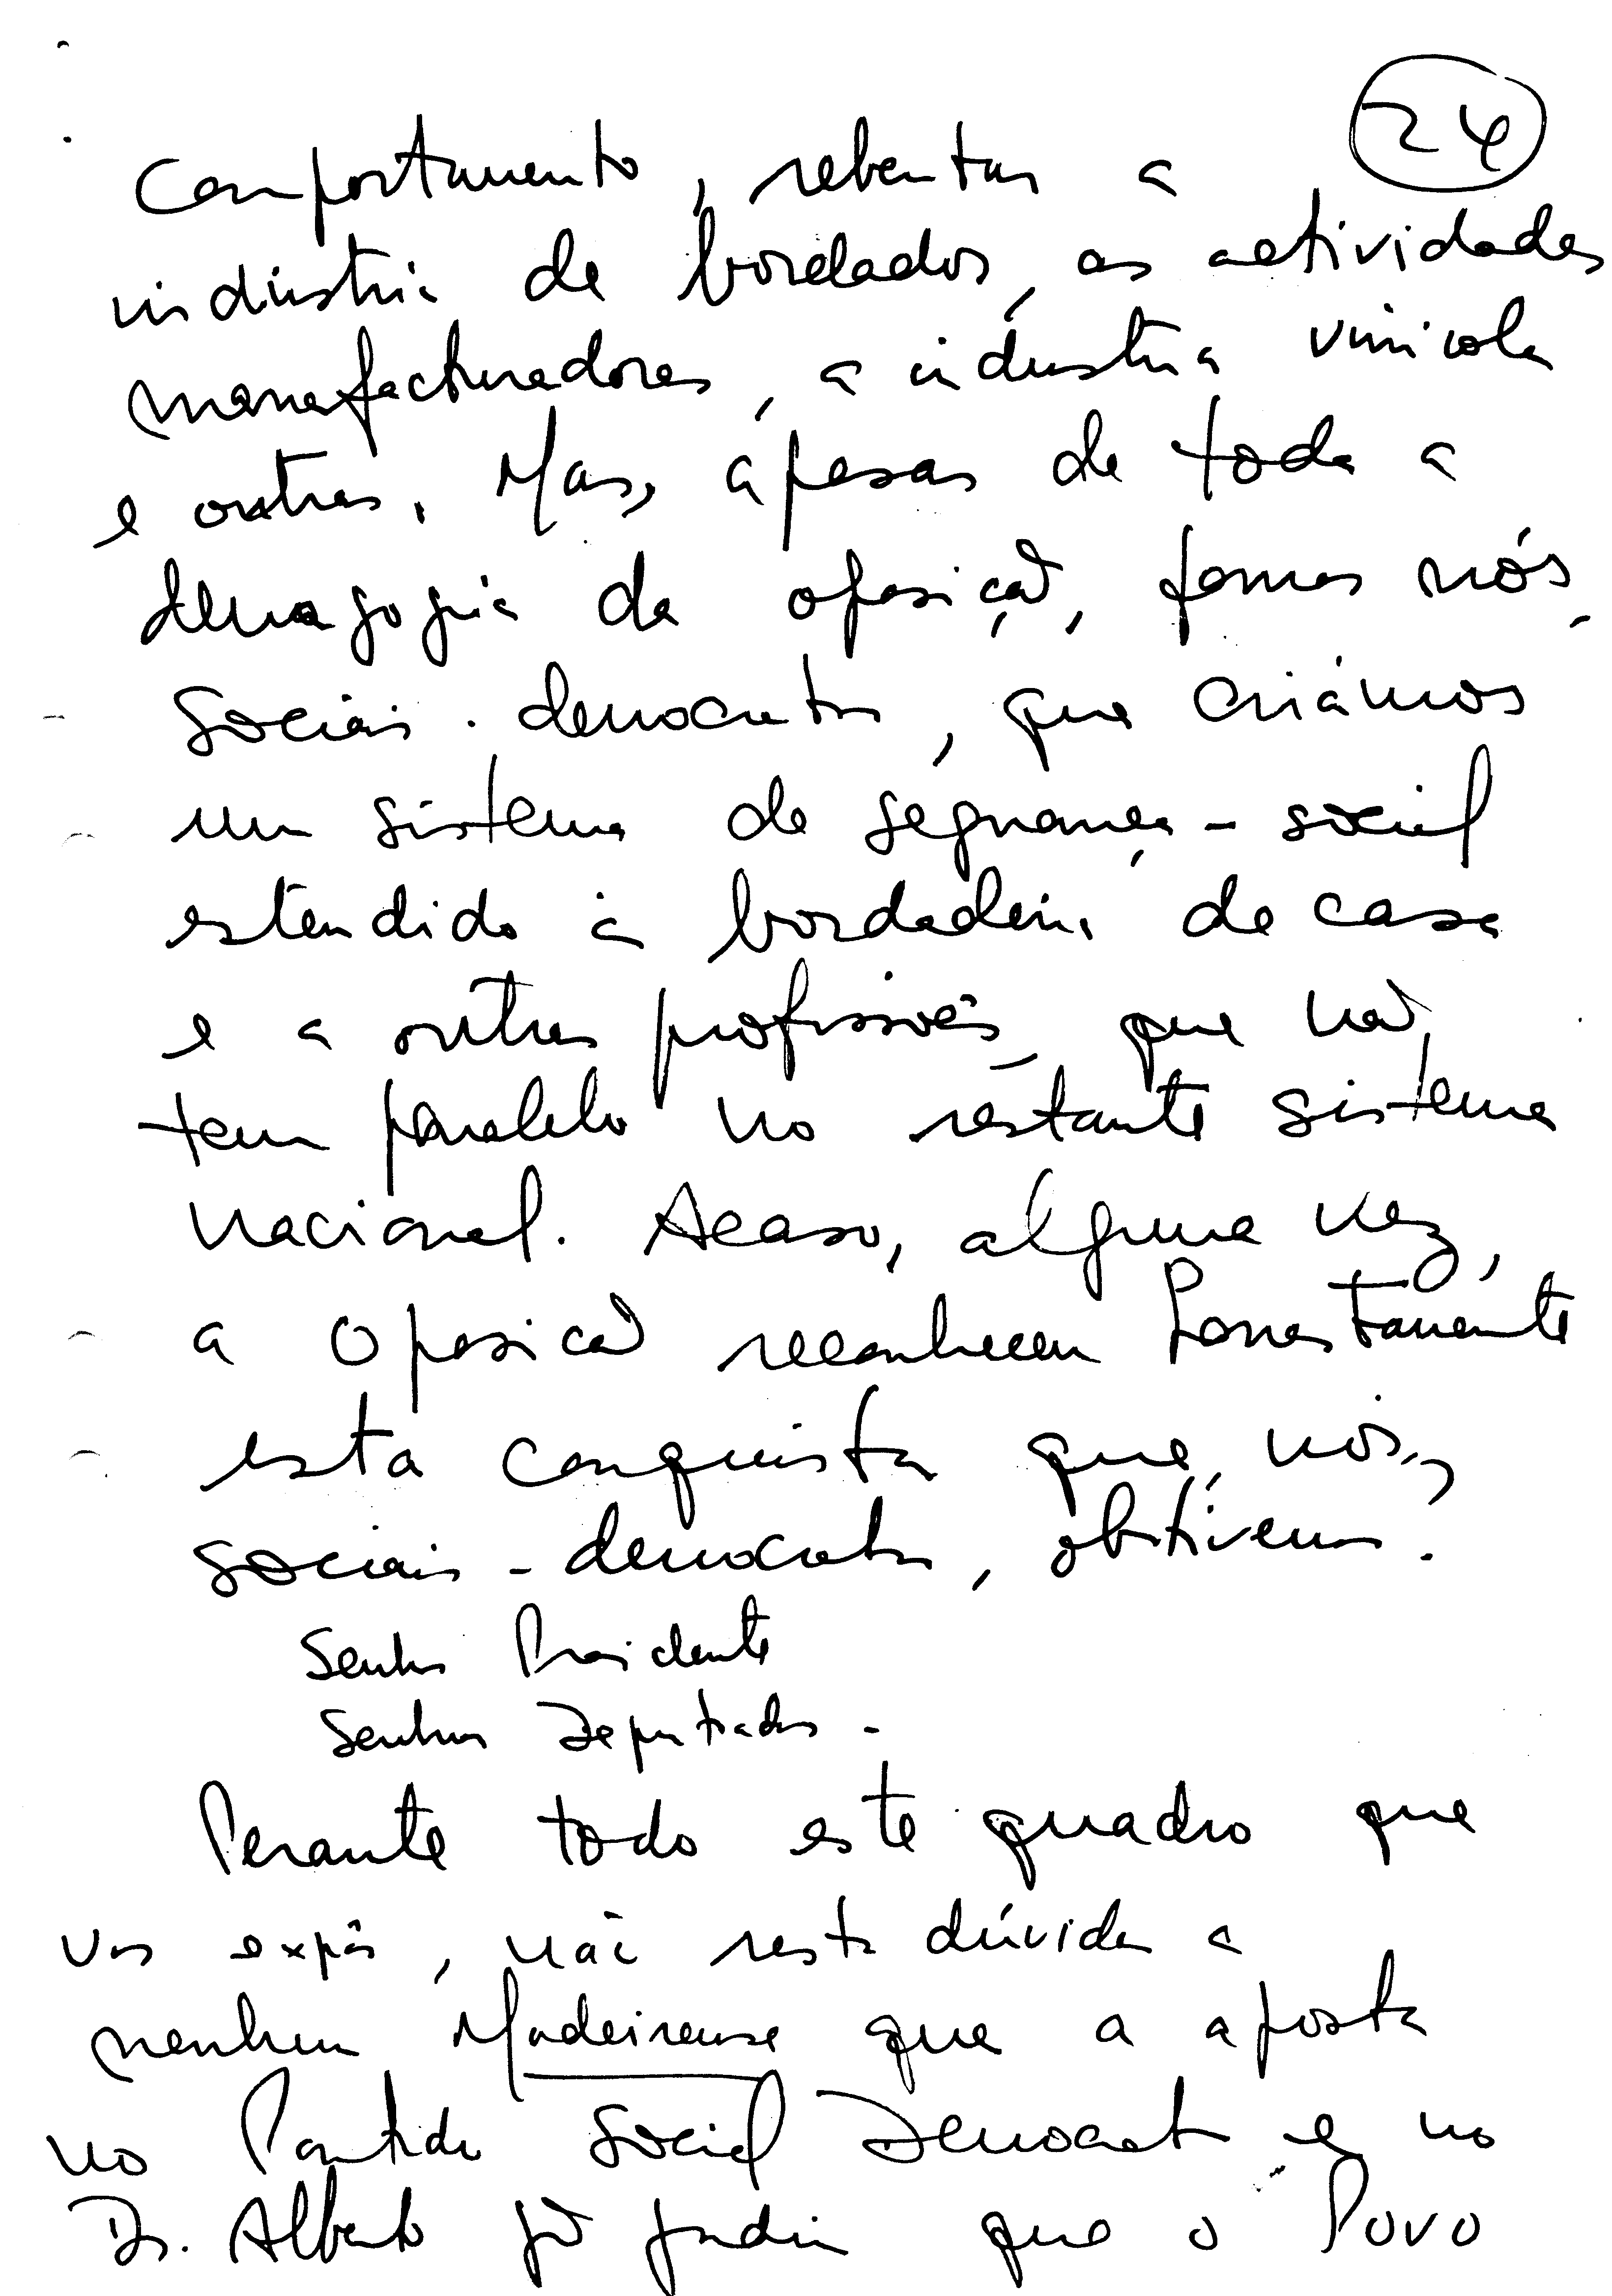 24
comportamento, rebentar a
indústria de bordados, as actividades
manufacturadoras, a indústria vinícola
e outras. Mas, apesar de toda a
demagogia da oposição, fomos nós,
sociais-democratas, que criámos
um sistema de segurança-social
estendido à bordadeira de casa
e a outras profissões, que não
tem paralelo no restante sistema
nacional. Acaso, alguma vez,
a Oposição reconheceu honestamente
esta conquista que, nós,
sociais-democratas, obtivemos?
Senhor Presidente
Senhores Deputados.
Perante todo este quadro que
vos expôs, não resta dúvida a
nenhum Madeirense que a aposta
no Partido Social Democrata e no
Dr. Alberto João Jardim que o Povo